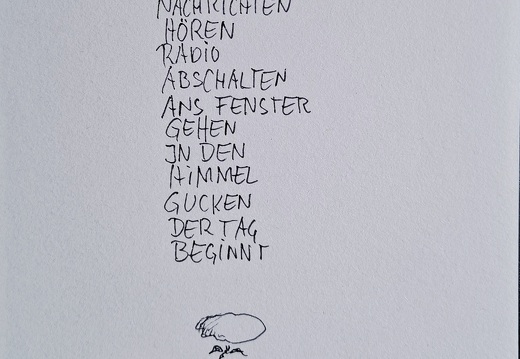 NACHRICHTEN
HÖREN
RADIO
ABSCHALTEN
ANS FENSTER
GEHEN
IN DEN
HIMMEL
GUCKEN
DER TAG
BEGINNT